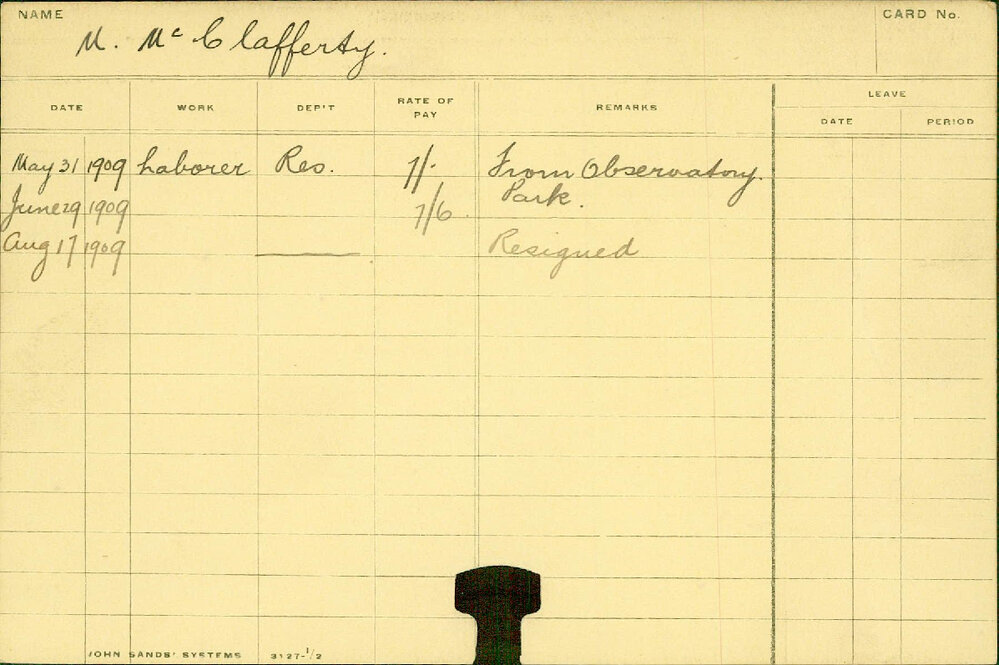 NAME CARD No.
M. Mc Clafferty.
DATE WORK DEP'T RATE OF PAY REMARKS LEAVE
DATE PERIOD
May 31 1909 Laborer Res. 7/- From Observatory
Park.
June 29 1909 7/6
Aug 17 1909 Resigned
JOHN SANDS' SYSTEMS 3127-1/2